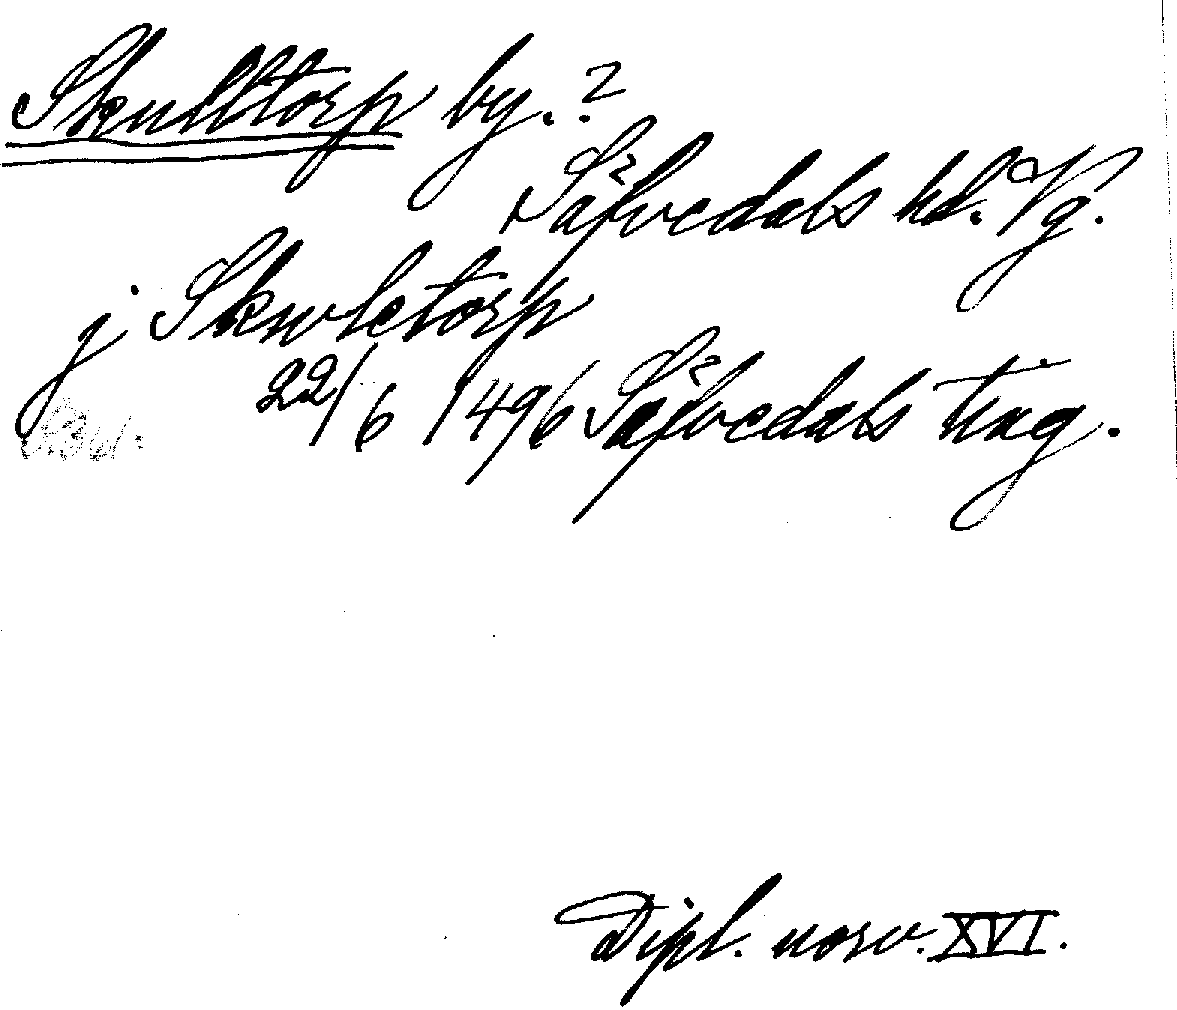 Skulltorp by. ?
Säfvedals hd. Vg.
j Skwletorp
22/6 1496 Säfvedals ting.
Dipl. norv. XVI.